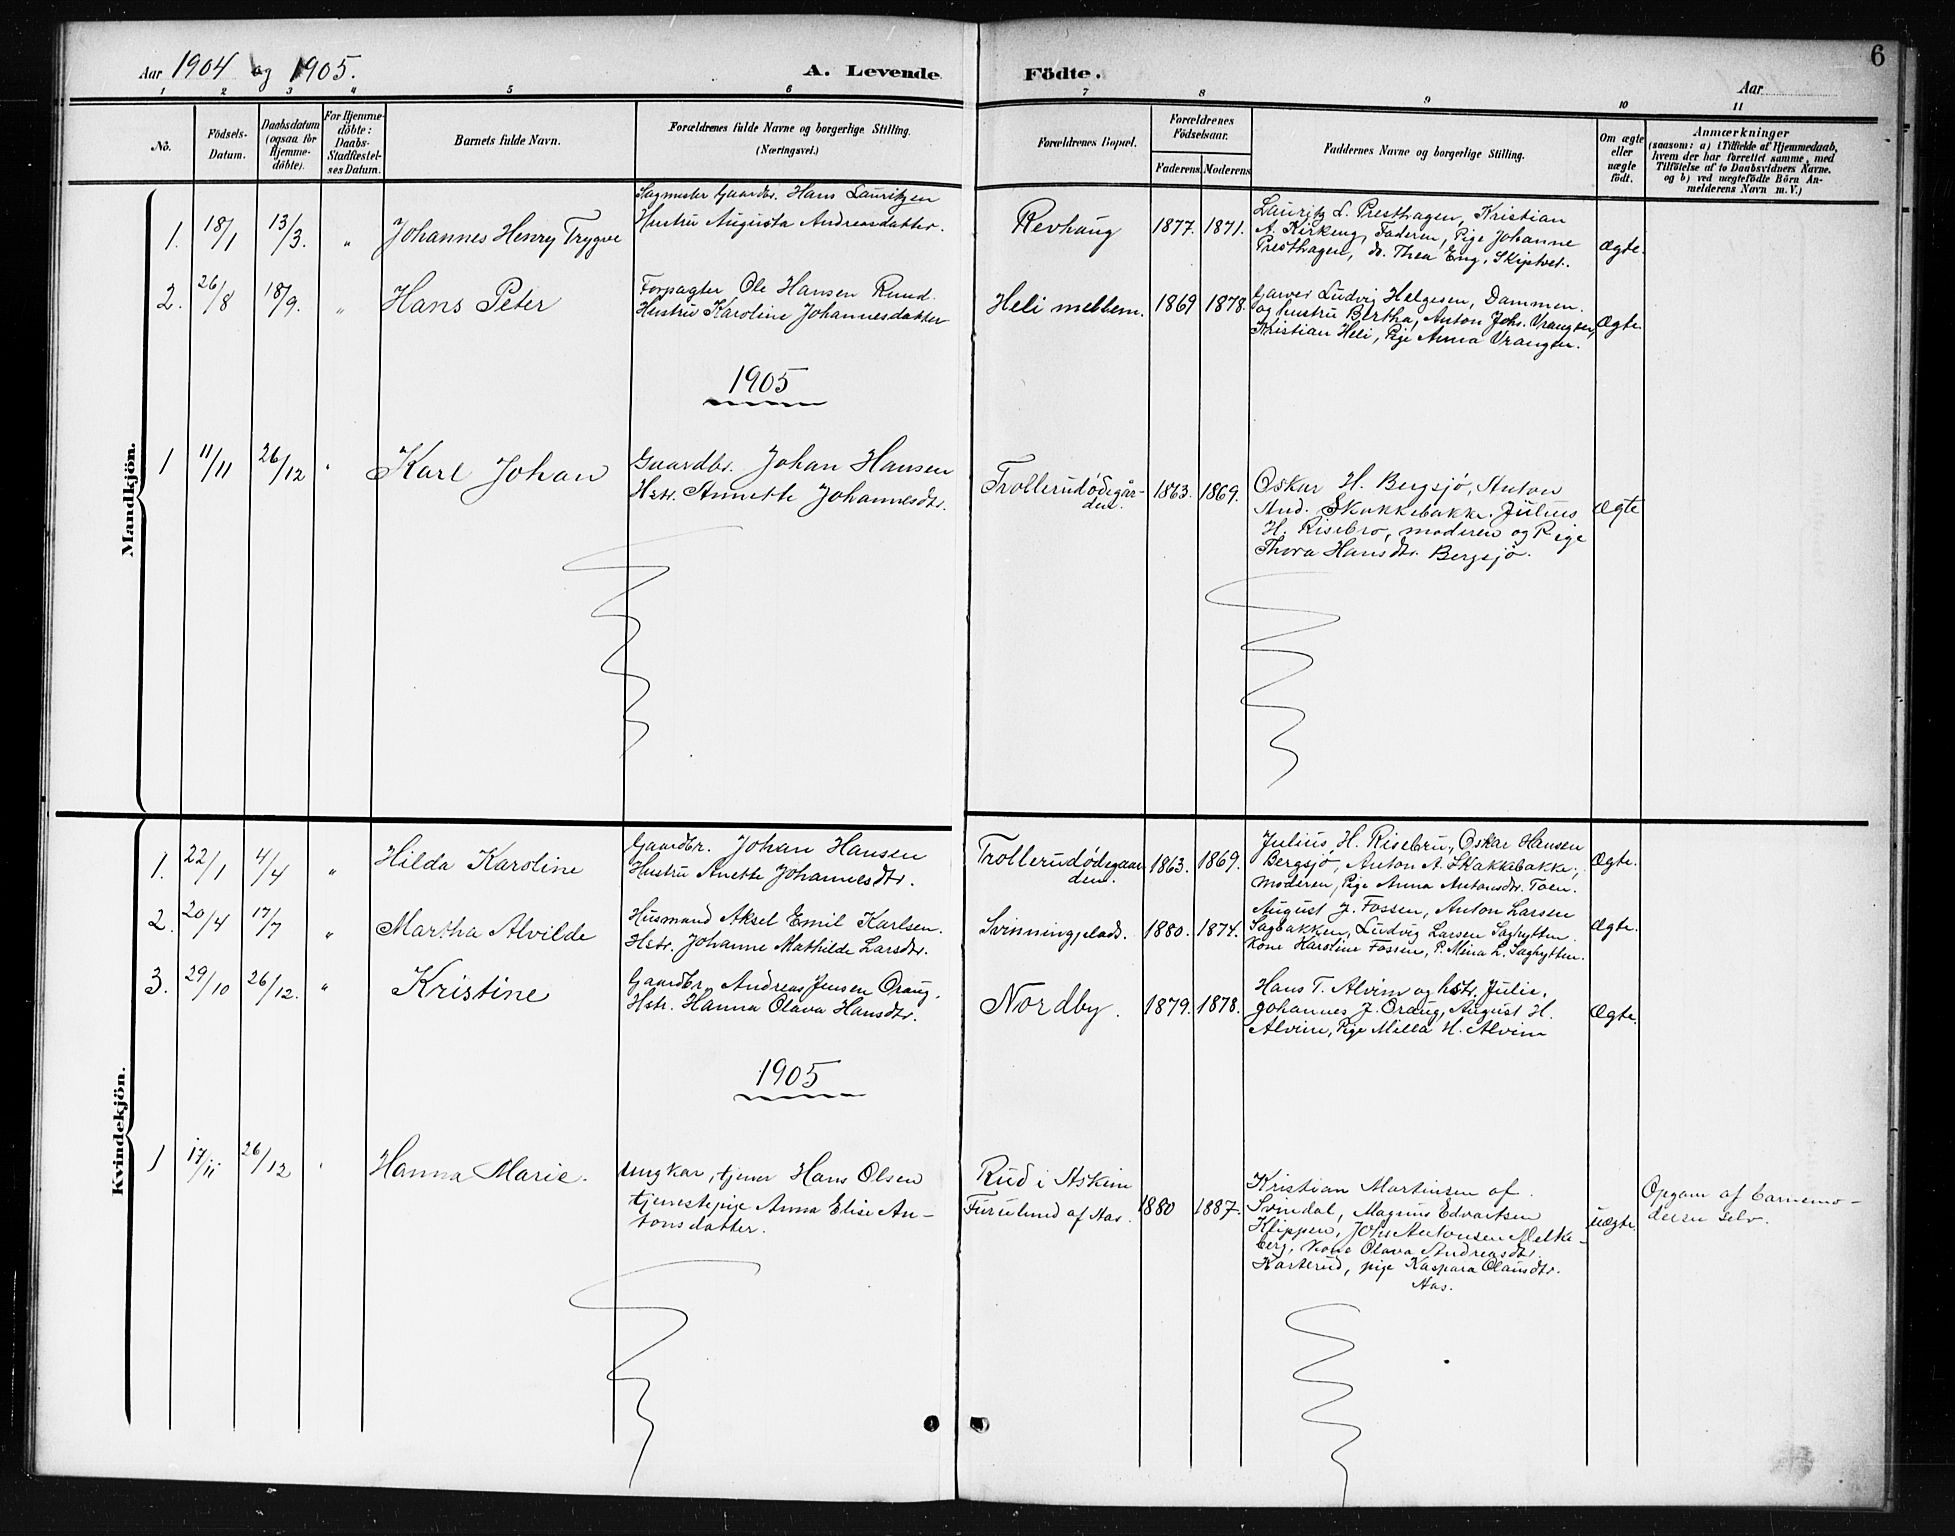 6
Aar 1904 og 1905.
A. Levende Födte.
Aar
1 2 3 4 5 6 7 8 9 10 11
No.
Födsels-Datum.
Daabsdatum (ogsaa for Hjemme-döbte).
For Hjemme-döbte: Daabs-Stadfæstel-ses Datum.
Barnets fulde Navn.
Forældrenes fulde Navne og borgerlige Stilling.
(Næringsvei.)
Forældrenes Bopæl.
Forældrenes Födselsaar.
Faderens Moderens
Faddernes Navne og borgerlige Stilling.
Om ægte eller uægte födt.
Anmærkninger
(saasom: a) i Tilfælde af Hjemmedaab,
hvem der har forrettet samme, med
Tilföielse af to Daabsvidners Navne.
og b) ved uægtefödte Börn An-
melderens Navn m. V.)
Mandkjön.
1. 18/1 13/3. " Johannes Henry Trygve
Sagmester Gaardbr. Hans Lauritzen
Hustru Augusta Andreasdatter.
Revhaug 1877. 1871.
Lauritz L. Presthagen, Kristian
A. Kirkeng, Faderen, Pige Johanne
Presthagen, do. Thea Eng, Skiptvet.
Ægte.
2. 26/8 18/9. " Hans Peter
Forpagter Ole Hansen Ruud.
Hustru Karoline Johannesdatter
Heli mellem. 1869 1878.
Garver Ludvig Helgesen, Dammen
og hustru Bertha, Anton Johs. Vrangen,
Kristian Heli, Pige Anna Vrangen.
Ægte.
1905
1 11/11 26/12 " Karl Johan
Gaardbr. Johan Hansen
Hstr. Annette Johannesdtr.
Trollerudødegår-
den. 1863. 1869.
Oskar H. Bergsjö, Anton
And. Skakkebakke. Julius
H. Risebro, moderen og Pige
Thora Hansdtr. Bergsjö.
Ægte
Kvindekjön.
1. 22/1 4/4 " Hilda Karoline
Gaardbr. Johan Hansen
Hustru Anette Johannesdtr.
Trollerudødegaar
den. 1863. 1869.
Julius H. Risebru, Oskar Hansen
Bergsjø, Anton A. Skakkebakke,
moderen, Pige Anna Antonsdtr. Toen.
Ægte.
2. 20/4 17/7 " Martha Alvilde
Husmand Aksel Emil Karlsen.
Hstr. Johanne Mathilde Larsdtr.
Svinningplads. 1880. 1874.
August J. Fossen, Anton Larsen
Sagbakken, Ludvig Larsen Saghytten
Kone Karoline Fossen, P. Mina L. Saghytten.
Ægte.
3. 29/10 26/12. " Kristine
Gaardbr. Andreas Jensen Oraug.
Hstr. Hanna Olava Hansdtr.
Nordby. 1879. 1878.
Hans T. Alvim og hstr. Julie,
Johannes J. Oraug, August H.
Alvim, Pige Milla H. Alvim
Ægte.
1905
1 17/11 26/12 " Hanna Marie.
Ungkar, tjener Hans Olsen
tjenestepige Anna Elise An-
tonsdatter.
Rud i Askim
Furulund af Aas. 1880 1887.
Kristian Martinsen af
Svindal, Magnus Edvartsen
Klippen, Johs Antonsen Melke-
berg, Kone Olava Andreasdtr.
Karterud, pige Kaspara Olausdtr.
Aas.
uægte.
Opgav af barnemo-
deren selv.